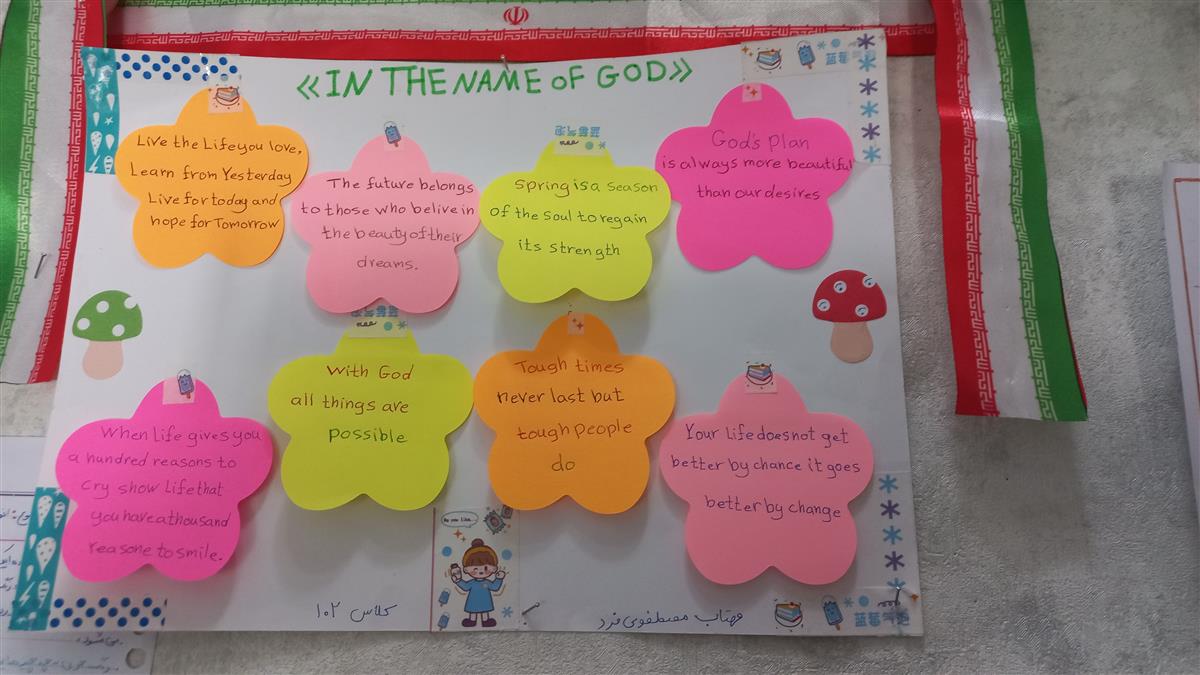 «IN THE NAME OF GOD»
Live the Life you love,
Learn from Yesterday
Live for today and
hope for Tomorrow
The future belongs
to those who belive in
the beauty of their
dreams.
Spring is a season
of the soul to regain
its strength
God's plan
is always more beautiful
than our desires
When life gives you
a hundred reasons to
cry show Life that
you have a thousand
reasone to smile.
With God
all things are
possible
Tough times
never last but
tough people
do
Your life does not get
better by chance it goes
better by change
کلاس ۱۰۲
مهتاب مصطفوی فرد